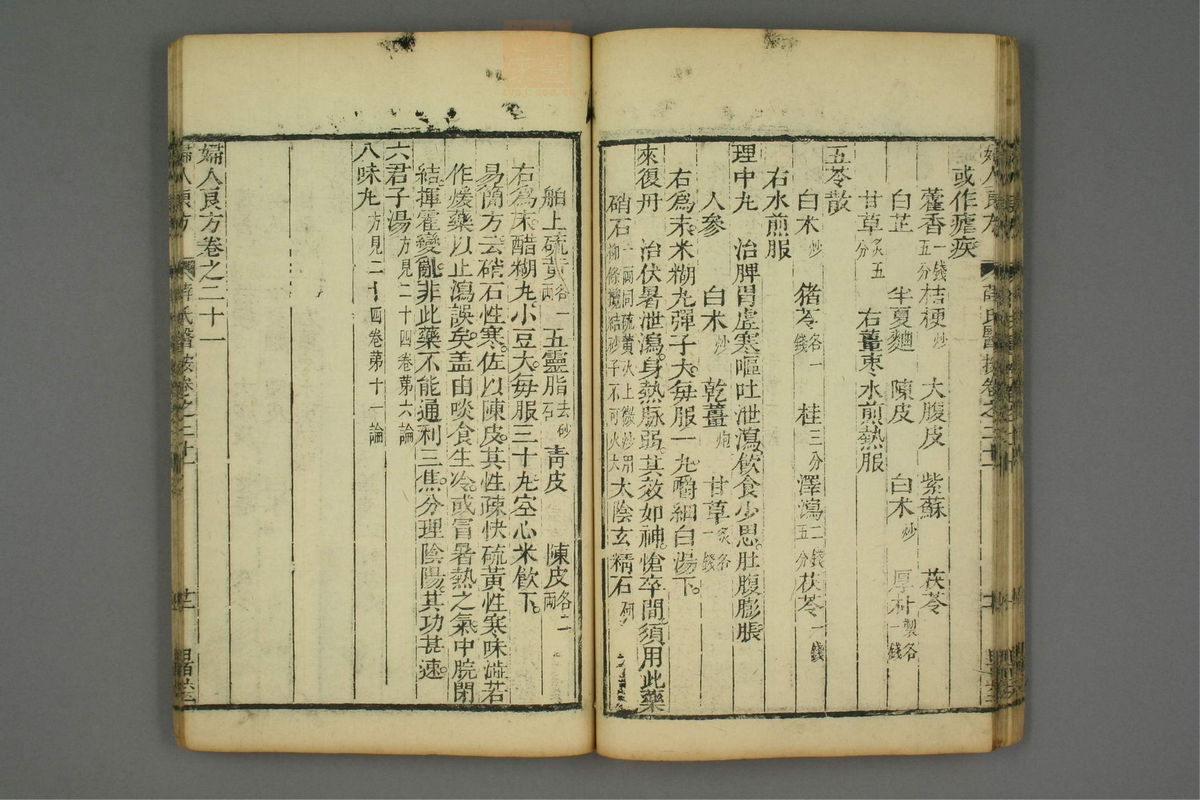 婦人良方 薛氏醫按卷之二十一
或作瘧疾
藿香一錢五分 桔梗炒 大腹皮 紫蘇 茯苓
白芷 半夏麯 陳皮 白术炒 厚朴製各一錢
甘草炙五分 右薑棗水煎熱服
五苓散
白术炒 猪苓各一錢 桂三分 澤瀉二錢五分 茯苓一錢
右水煎服
理中丸 治脾胃虛寒嘔吐泄瀉飲食少思肚腹膨脹
人參 白术炒 乾薑炮 甘草炙各一錢
右爲末米糊丸彈子大每服一丸嚼細白湯下
來復丹 治伏暑泄瀉身熱脉弱其效如神愴卒間須用此藥
硝石一兩同硫黃火上微炒用柳條攪結砂子不可火大 太陰玄精石研
舶上硫黃各一兩 五靈脂去砂石 靑皮 陳皮各二兩
右爲末醋糊丸小豆大每服三十丸空心米飮下
易簡方云硝石性寒佐以陳皮其性疎快硫黃性寒味澁若
作煖藥以止瀉誤矣盖由啖食生冷或冒暑熱之氣中脘閉
結揮霍變亂非此藥不能通利三焦分理陰陽其功甚速
六君子湯方見二十四卷第六論
八味丸方見二十四卷第十一論
婦人良方卷之二十一
婦人良方 薛氏醫按卷之二十一